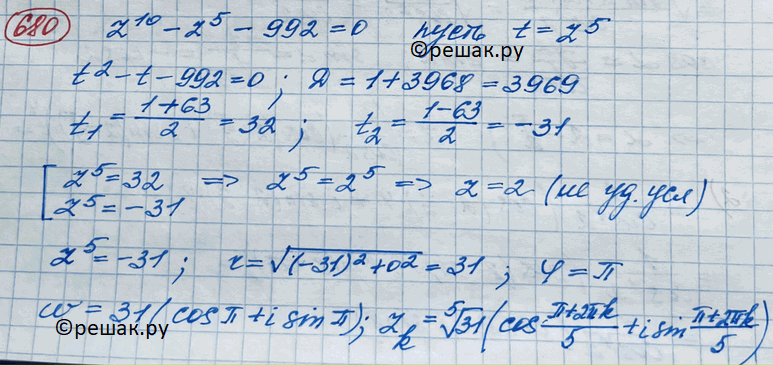 680 z¹⁰ - z⁵ - 992 = 0 пусть t = z⁵
©решак.ру
t² - t - 992 = 0 ; Д = 1 + 3968 = 3969
t₁ = (1+63)/2 = 32 ; t₂ = (1-63)/2 = -31
[ z⁵ = 32 => z⁵ = 2⁵ => z = 2 (не уд. усл)
z⁵ = -31
z⁵ = -31 ; r = √((-31)² + 0²) = 31 ; φ = π
ω = 31 (cos π + i sin π) ; z_k = ⁵√31 (cos (π+2πk)/5 + i sin (π+2πk)/5)
©решак.ру